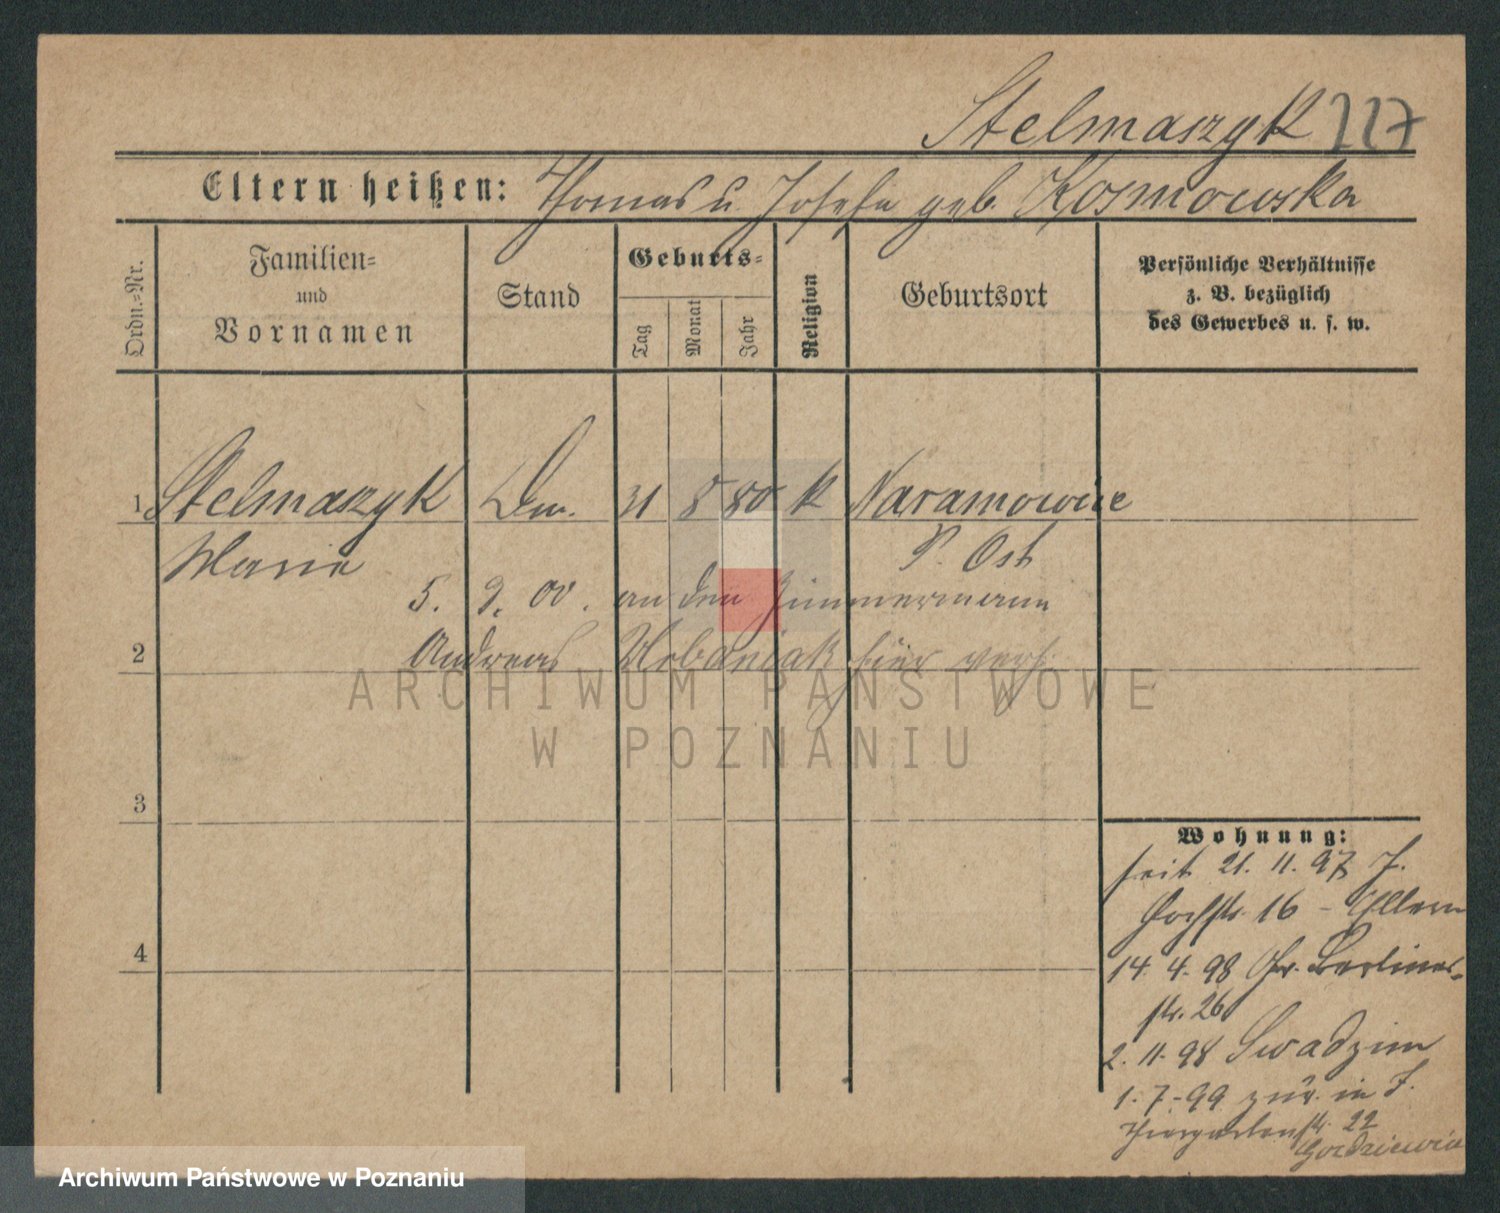 Stelmaszyk 227
Eltern heißen: Thomas u. Josefa geb. Kosmowska
Ordn.-Nr.
Familien-
und
Vornamen
Stand
Geburts-
Tag
Monat
Jahr
Religion
Geburtsort
Persönliche Verhältnisse
z. B. bezüglich
des Gewerbes u. s. w.
1 Stelmaszyk 31 8 80 k Naramowice
Marie P. Ost
5. 9. 00. an den Zimmermann
2 Andreas Urbaniak hier verh.
ARCHIWUM PAŃSTWOWE
W POZNANIU
3
4
Wohnung:
seit 21. 11. 97 J.
Hochstr. 16 - Eltern
14. 4. 98 Gr. Berliner-
str. 26
2. 11. 98 Swadzim
1. 7. 99 zur. in J.
Thiergartenstr. 22
Archiwum Państwowe w Poznaniu